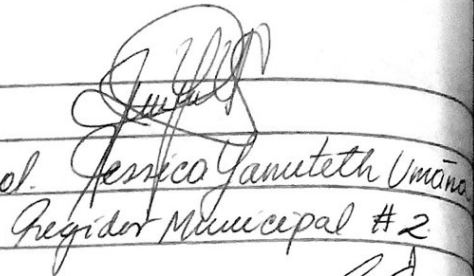 ol. Jessica Yamuteth Umāna.
Regidor Municipal #2